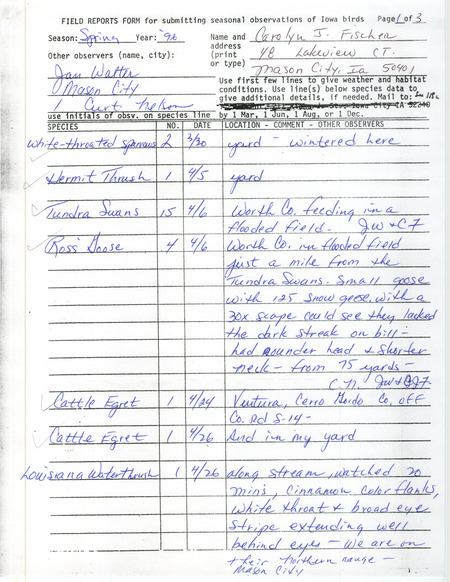 FIELD REPORTS FORM for submitting seasonal observations of Iowa birds Page 1 of 3
Season: Spring Year: '96 Name and Carolyn J. Fischer
address
Other observers (name, city): (print 48 Lakeview CT.
or type) Mason City, Ia 50401
Jan Walter
Mason City
Curt Nelson
Use first few lines to give weather and habitat
conditions. Use line(s) below species data to
give additional details, if needed. Mail to:
Iowa City IA 52240
use initials of obsv. on species line by 1 Mar, 1 Jun, 1 Aug, or 1 Dec.
SPECIES NO. DATE LOCATION - COMMENT - OTHER OBSERVERS
White-throated sparrows 2 3/30 yard - wintered here
Hermit Thrush 1 4/5 yard
Tundra Swans 15 4/6 Worth Co. feeding in a
flooded field. JW & CF
Ross' Goose 4 4/6 Worth Co. in flooded field
just a mile from the
Tundra Swans. Small goose
with 125 snow geese. with a
30x scope could see they lacked
the dark streak on bill -
had rounder head & shorter
neck - from 75 yards -
C.N. JW & CJF
Cattle Egret 1 4/24 Ventura, Cerro Gordo Co. off
Co. Rd S-14-
Cattle Egret 1 4/26 And in my yard
Louisiana Waterthrush 1 4/26 along stream, watched 20
mins, cinnamon color flanks,
white throat & broad eye
stripe extending well
behind eyes - We are on
their northern range -
Mason City